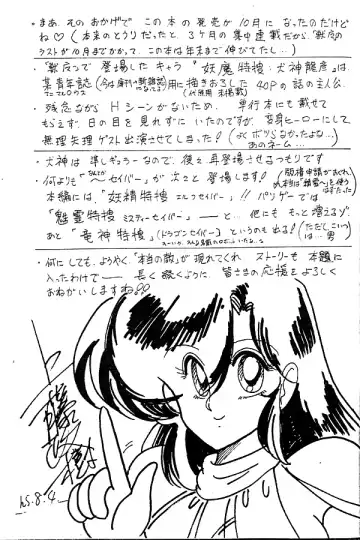 ・まあ、そのおかげで この本の発売が10月に なったのだけど
ね♡(本来のとうりだったと、3ヶ月の集中連載だから、
ラストが10月までかかって、この本は年末まで伸びてたし…)
登場したキャラ "妖魔特捜・犬神龍彦"は、
某青年誌 用に描きおろした 40Pの話の主人公。
・残念ながら Hシーンがないため、単行本にも載せて
もらえず、日の目を見れずにいたのですが、
無理矢理ゲスト出演させてしまった!
・犬神は 準レギュラーなので、後々 再登場させるつもりです
・何よりも 「〜セイバー」が 次々と 登場します!
本編には、"妖精特捜 エルフセイバー"!! パソゲーでは
「魅霊特捜 ミスティーセイバー」――と… 他にも もっと増えるゾ。
あと「竜神特捜」(ドラゴンセイバー) というのも出る! (ただしこいつは…男)
・何にしても、ようやく「本当の敵」が 現れてくれ ストーリーも 本題に
入ったわけで―― 長く続くように 皆さまの応援 よろしく
おねがいしますね!!
8.4